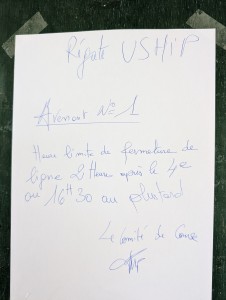 Régate USHIP
Avenant N°1
Heure limite de fermeture de
ligne 2 Heure après le 4e
ou 16H30 au plus tard
Le Comité de Course